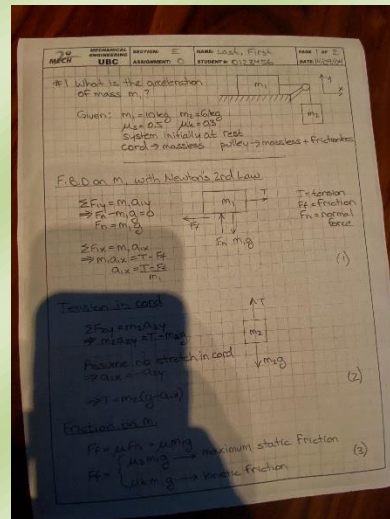 2º MECH
MECHANICAL ENGINEERING UBC
SECTION: E
ASSIGNMENT: 0
NAME: Last, First
STUDENT #: 0123456
PAGE 1 OF 2
DATE:
#1 What is the acceleration
of mass m₁?
m₁
m₂
y
x
Given: m₁ = 10kg m₂ = 6kg
μs = 0.5 μk = 0.3
system initially at rest
cord → massless pulley → massless + frictionless
F.B.D on m₁ with Newton's 2nd Law
ΣF₁y = m₁a₁y
⇒ Fn - m₁g = 0
Fn = m₁g
m₁
T
Ff
Fn m₁g
T = tension
Ff = friction
Fn = normal
force
ΣF₁x = m₁a₁x
⇒ m₁a₁x = T - Ff
a₁x = T - Ff
m₁
(1)
Tension in cord
ΣF₂y = m₂a₂y
⇒ m₂a₂y = T - m₂g
T
m₂
m₂g
Assume no stretch in cord
⇒ a₁x = -a₂y
⇒ T = m₂(g - a₁x)
(2)
Friction on m₁
Ff = μFn = μm₁g
Ff = { μs m₁g → maximum static friction
μk m₁g → kinetic friction
(3)